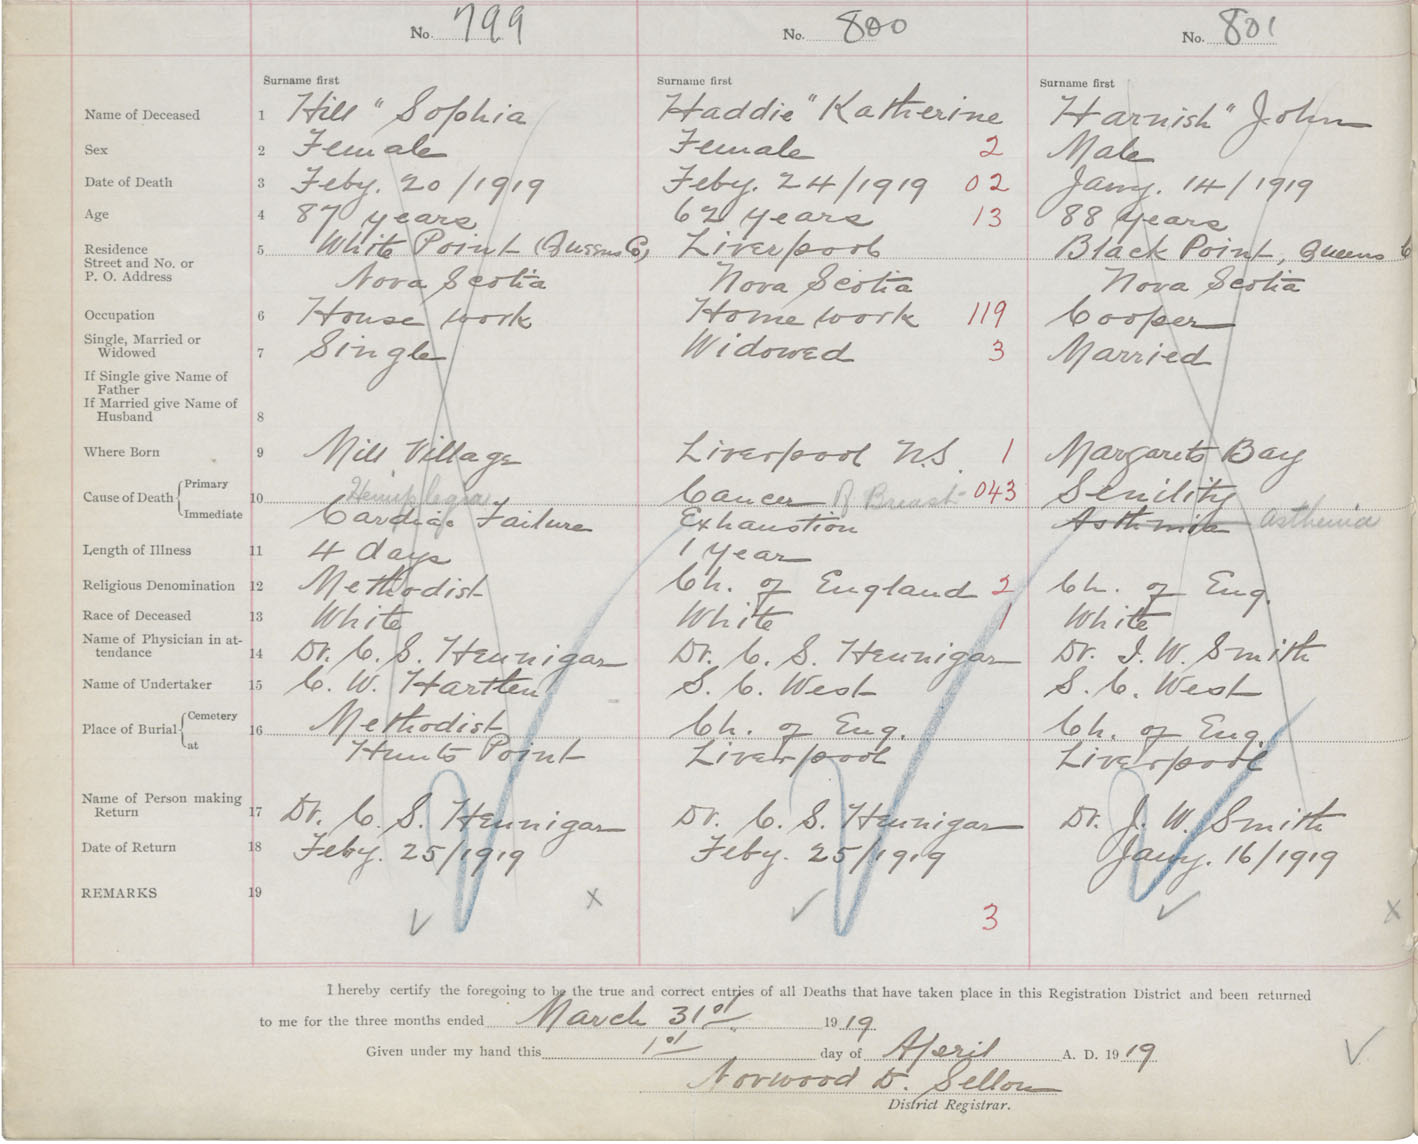 No. 799 No. 800 No. 801
Surname first Surname first Surname first
Name of Deceased 1 Hill " Sophia Haddie " Katherine Harnish " John
Sex 2 Female Female 2 Male
Date of Death 3 Feby. 20/1919 Feby. 24/1919 02 Jany. 14/1919
Age 4 87 years 62 years 13 88 years
Residence 5 White Point (Queens Co) Liverpool Black Point, Queens C
Street and No. or
P. O. Address Nova Scotia Nova Scotia Nova Scotia
Occupation 6 House work Home work 119 Cooper
Single, Married or
Widowed 7 Single Widowed 3 Married
If Single give Name of
Father
If Married give Name of
Husband 8
Where Born 9 Mill Village Liverpool N.S. 1 Margarets Bay
Cause of Death Primary 10 Hemiplegia Cancer of Breast 043 Senility
Immediate Cardiac Failure Exhaustion Asthmia Asthenia
Length of Illness 11 4 days 1 year
Religious Denomination 12 Methodist Ch. of England 2 Ch. of Eng.
Race of Deceased 13 White White 1 White
Name of Physician in at-
tendance 14 Dr. C. S. Hennigar Dr. C. S. Hennigar Dr. J. W. Smith
Name of Undertaker 15 C. W. Hartlen S. C. West S. C. West
Place of Burial Cemetery 16 Methodist Ch. of Eng. Ch. of Eng.
at Hunts Point Liverpool Liverpool
Name of Person making
Return 17 Dr. C. S. Hennigar Dr. C. S. Hennigar Dr. J. W. Smith
Date of Return 18 Feby. 25/1919 Feby. 25/1919 Jany. 16/1919
REMARKS 19
3
I hereby certify the foregoing to be the true and correct entries of all Deaths that have taken place in this Registration District and been returned
to me for the three months ended March 31st 1919
Given under my hand this 1st day of April A. D. 1919
Norwood D. Sellon
District Registrar.